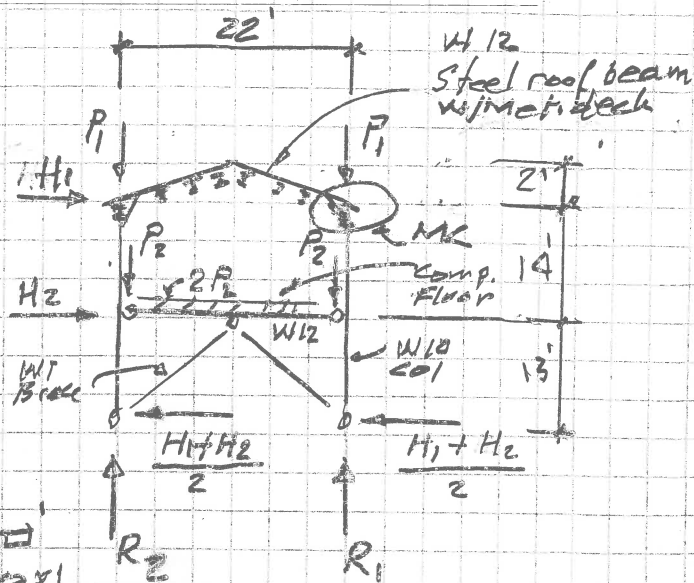 22'
W 12
Steel roof beam
w/met. deck
P1
P1
H1
2'
MK
P2
P2
2P2
Comp.
Floor
14'
H2
W12
W10
Col
13'
WT
Brace
H1+H2
2
H1+H2
2
R2
R1